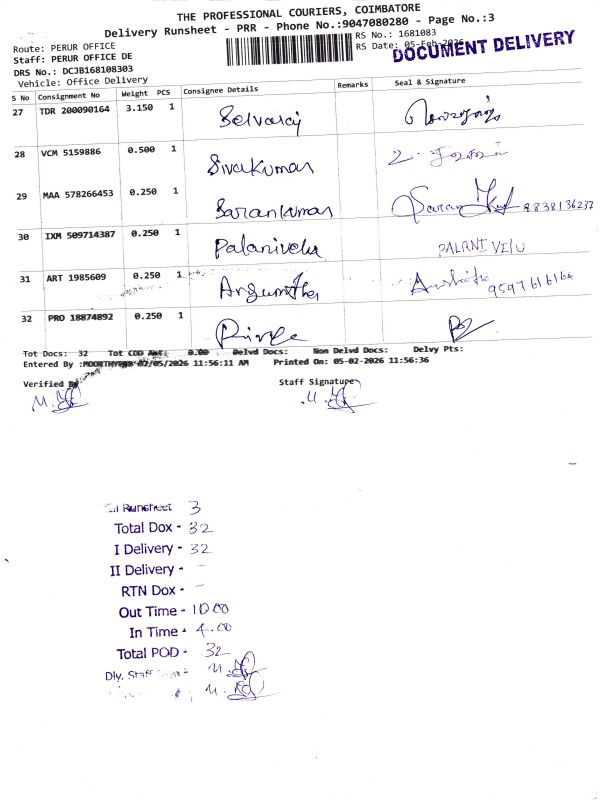 THE PROFESSIONAL COURIERS, COIMBATORE
Delivery Runsheet - PRR - Phone No.:9047080280 - Page No.:3
Route: PERUR OFFICE
RS No.: 1681083
Staff: PERUR OFFICE DE
RS Date: 05-Feb-2026
DOCUMENT DELIVERY
DRS No.: DCJB168108303
Vehicle: Office Delivery
S No Consignment No Weight PCS Consignee Details Remarks Seal & Signature
27 TDR 200090164 3.150 1 Selvaraj
28 VCM 5159886 0.500 1 Sivakumar
29 MAA 578266453 0.250 1 Sarankumar Saran 8838136237
30 IXM 509714387 0.250 1 Palanivelu PALANI VELU
31 ART 1985609 0.250 1 9597616164
32 PRO 18874892 0.250 1
Tot Docs: 32 Tot COD Amt: 0.00 Delvd Docs: Non Delvd Docs: Delvy Pts:
Entered By : 02/05/2026 11:56:11 AM Printed On: 05-02-2026 11:56:36
Verified By
Staff Signature
Runsheet 3
Total Dox - 32
I Delivery - 32
II Delivery - -
RTN Dox - -
Out Time - 10.00
In Time - 4.00
Total POD - 32
Dly. Staff